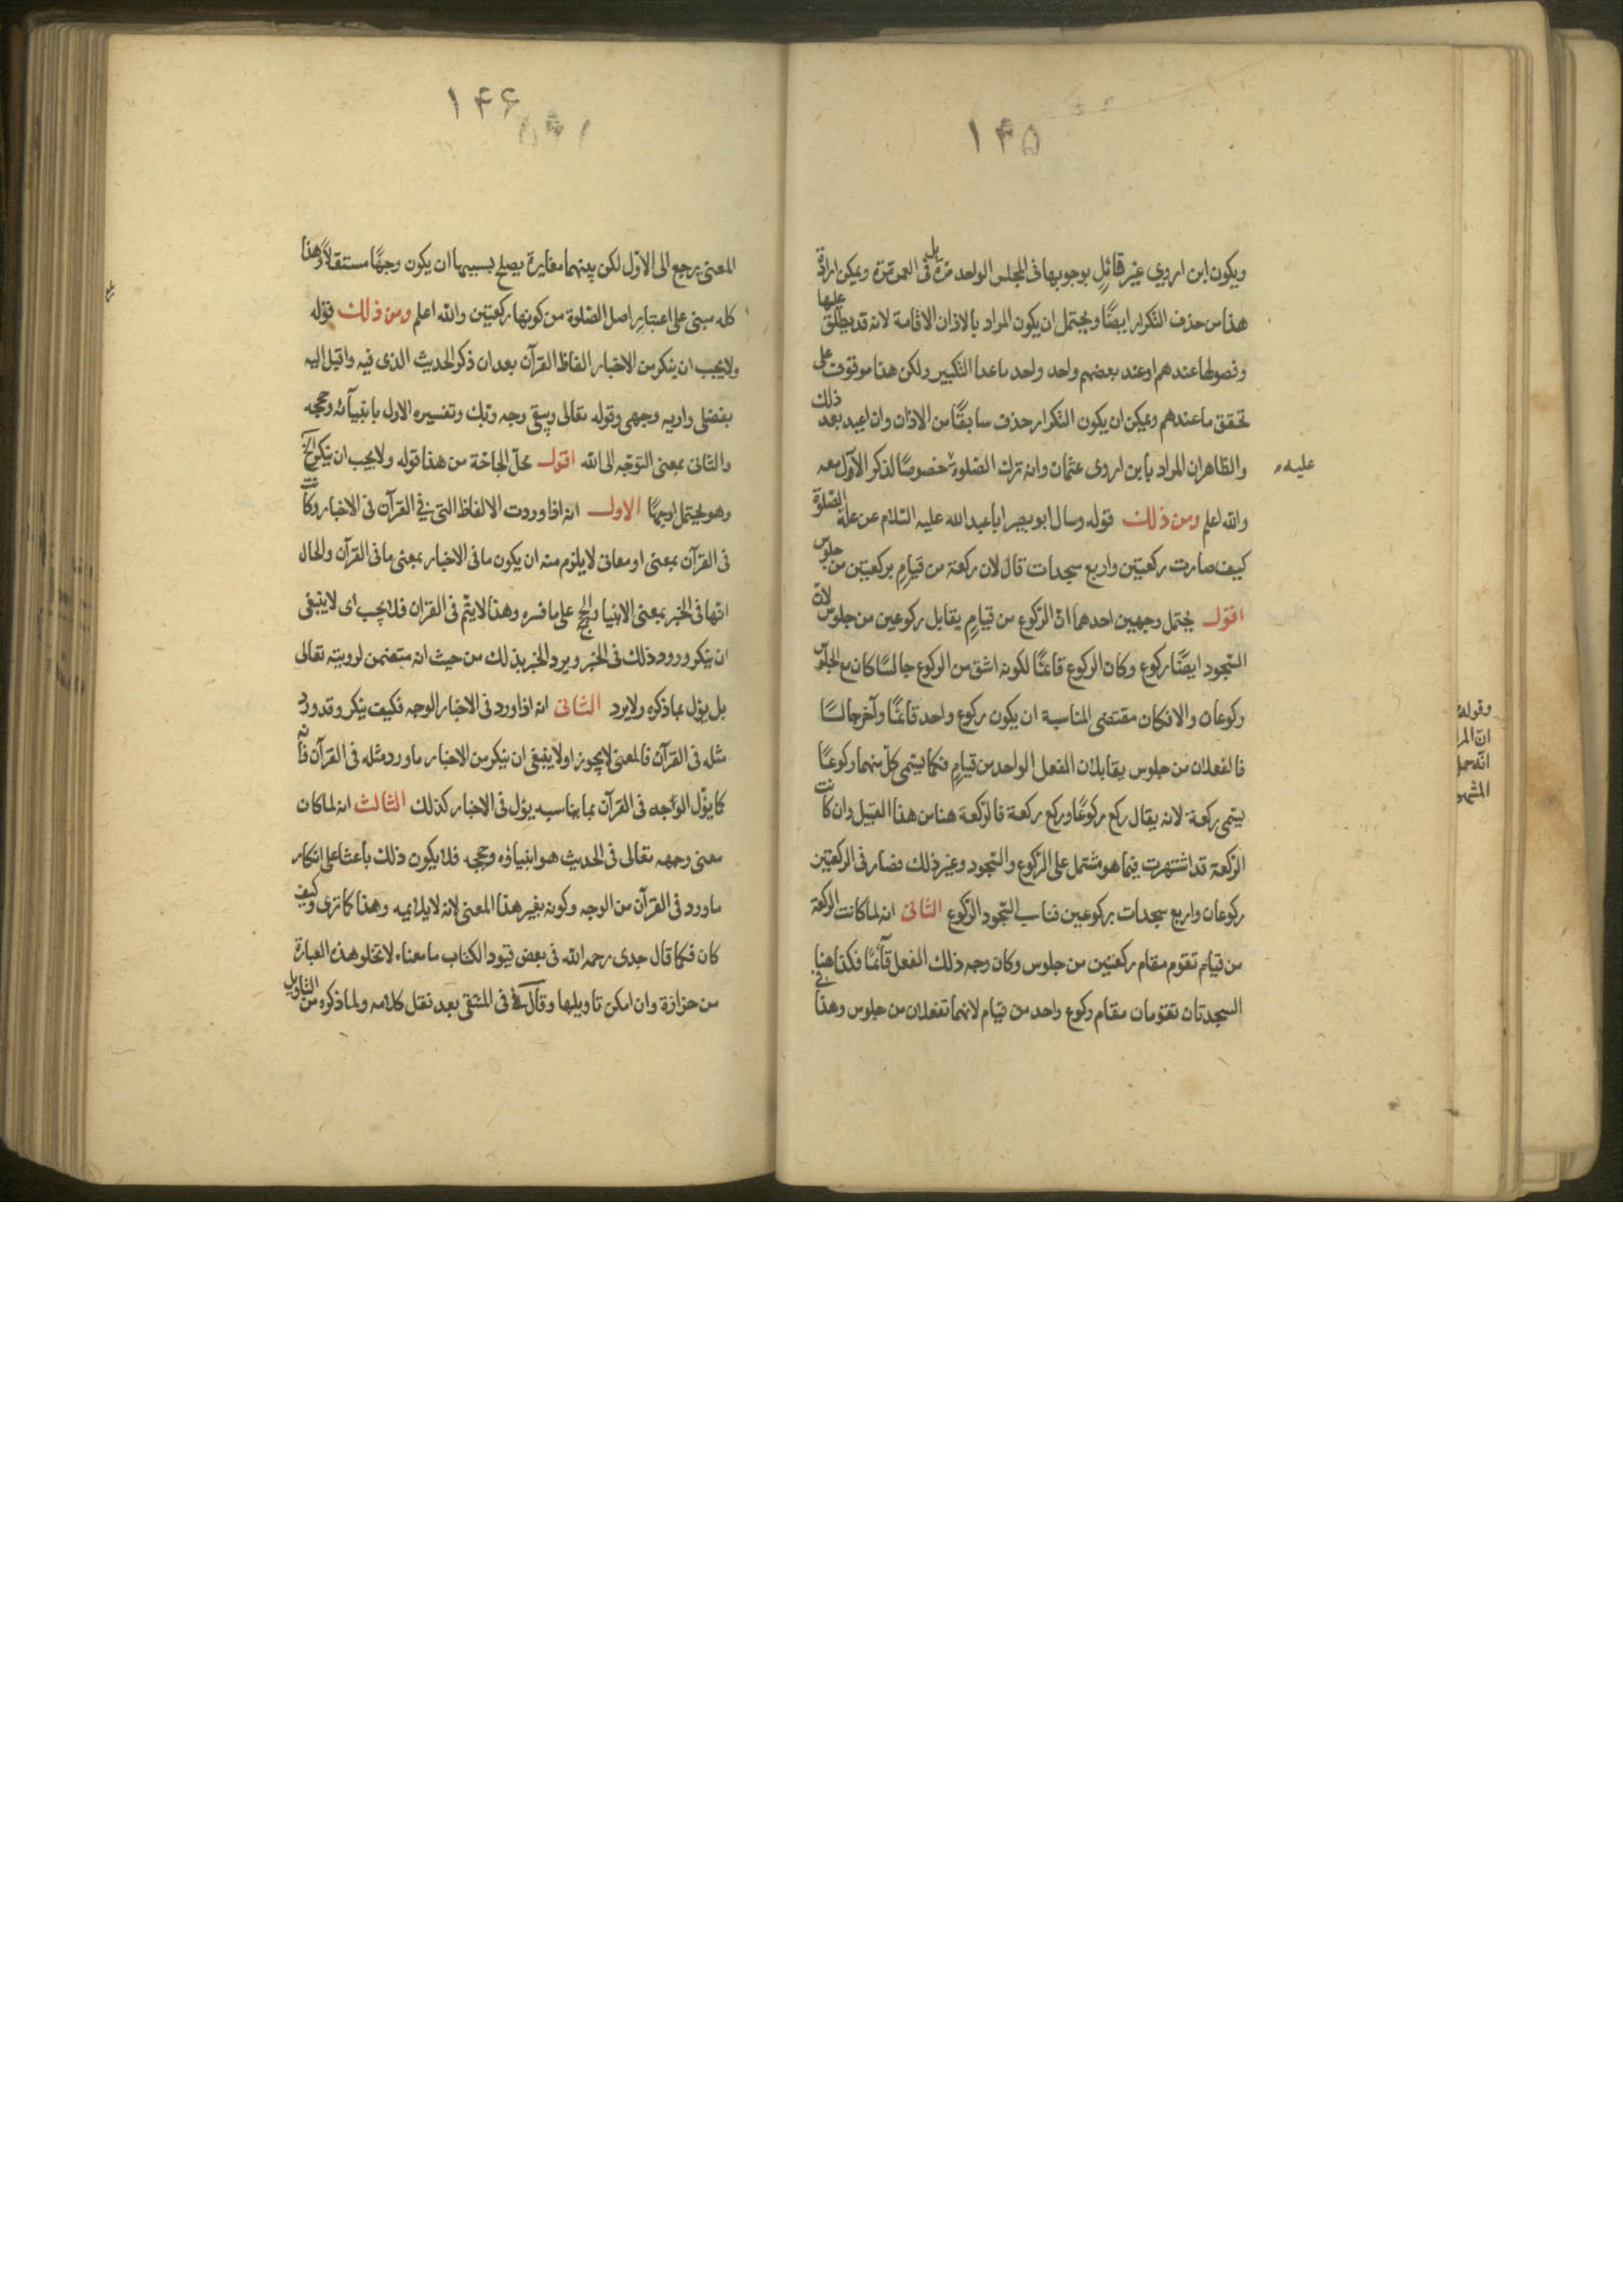 ١۴۵
ويكون ابن اروي غير قائلٍ بوجوبها فى المجلس الواحد مرّة بل فى العمر مرّة ويمكن ارادة
هذا من حذف التكرار ايضًا ويحتمل ان يكون المراد بالاذان الاقامة لانه قد يطلق عليها
وفصولها عندهم او عند بعضهم واحد واحد ماعدا التكبير ولكن هذا موقوف على
تحقق ما عندهم ويمكن ان يكون التكرار حذف سابقًا من الاذان وان اعيد بعد ذلك
والظاهر ان المراد بابن اروى عثمان وانه ترك الصّلوة خصوصًا لذكر الآول معه
عليه
والله اعلم ومن ذلك قوله وسال ابو بصير ابا عبد الله عليه السّلام عن علة الصّلوة
كيف صارت ركعتين واربع سجدات قال لان ركعة من قيامٍ بركعتين من جلوس
اقول يحتمل وجهين احدهما انّ الرّكوع من قيامٍ يقابل ركوعين من جلوس لانّ
السّجود ايضًا ركوع وكان الركوع قائمًا لكونه اشق من الركوع جالسًا كان مع الجلوس
ركوعان والا فكان مقتضى المناسبة ان يكون ركوع واحد قائمًا وآخر جالسًا
فالفعلان من جلوس يقابلان الفعل الواحد من قيامٍ فكما يسّمى كلّ منهما ركوعًا
يسّمى ركعة لانه يقال ركع ركوعًا وركع ركعة فالرّكعة هنا من هذا القبيل وان كانت
الرّكعة قد اشتهرت فيما هو مشتمل على الرّكوع والسّجود وغير ذلك فصار فى الركعتين
ركوعان واربع سجدات بركوعين فناسب السّجود الرّكوع الثانى انه لما كانت الركعة
من قيام تقوم مقام ركعتين من جلوس وكان وجه ذلك الفعل قآئمًا فكذا هنا
السجدتان تقومان مقام ركوع واحد من قيام لانهما تفعلان من جلوس وهذا
وقوله
انّ المر
انّه حمل
المشهو
١۴۶
المعنى يرجع الى الاوّل لكن بينهما مغايرة يصلح بسببها ان يكون وجهًا مستقلاًّ وهذا
كله مبنى على اعتبار اصل الصّلوة من كونها ركعتين والله اعلم ومن ذلك قوله
ولايجب ان ينكر من الاخبار الفاظ القرآن بعد ان ذكر الحديث الذى فيه واقبل اليه
بفضلى واريه وجهى وقوله تعالى ويبقى وجه ربّك وتفسيره الاول بانبيآئه وحججه
والثانى بمعنى التوجّه الى الله اقول محلّ الحاجة من هذا قوله ولايجب ان ينكر الخ
وهو يحتمل اوجهًا الاول انه اذا وردت الالفاظ التى فى القرآن فى الاخبار وكانت
فى القرآن بمعنى او معانى لايلزم منه ان يكون ما فى الاخبار بمعنى ما فى القرآن والحال
انّها فى الخبر بمعنى الانبياء والحجج على ما فسره وهذا لايتمّ فى القران فلايجب اى لاينبغى
ان ينكر ورود ذلك فى الخبر ويرد الخبر بذلك من حيث انه متضمن لرويته تعالى
بل يؤل بما ذكره ولايرد الثانى انه اذا ورد فى الاخبار الوجه فكيف ينكر وقد ورد
مثله فى القرآن فالمعنى لايجوز او لاينبغى ان ينكر من الاخبار ما ورد مثله فى القرآن فانه
كما يؤل الوجه فى القرآن بما يناسبه يؤل فى الاخبار كذلك الثالث انه لما كان
معنى وجهه تعالى فى الحديث هو انبياؤه وحججه فلايكون ذلك باعثا على انكار
ما ورد فى القرآن من الوجه وكونه بغير هذا المعنى لانه لايلائمه وهذا كما ترى وكيف
كان فكما قال جدى رحمه الله فى بعض قيود الكتاب ما معناه لاتخلو هذه العبارة
من حزازة وان امكن تاويلها وقال فى المنتقى بعد نقل كلامه ولما ذكره من التاويل